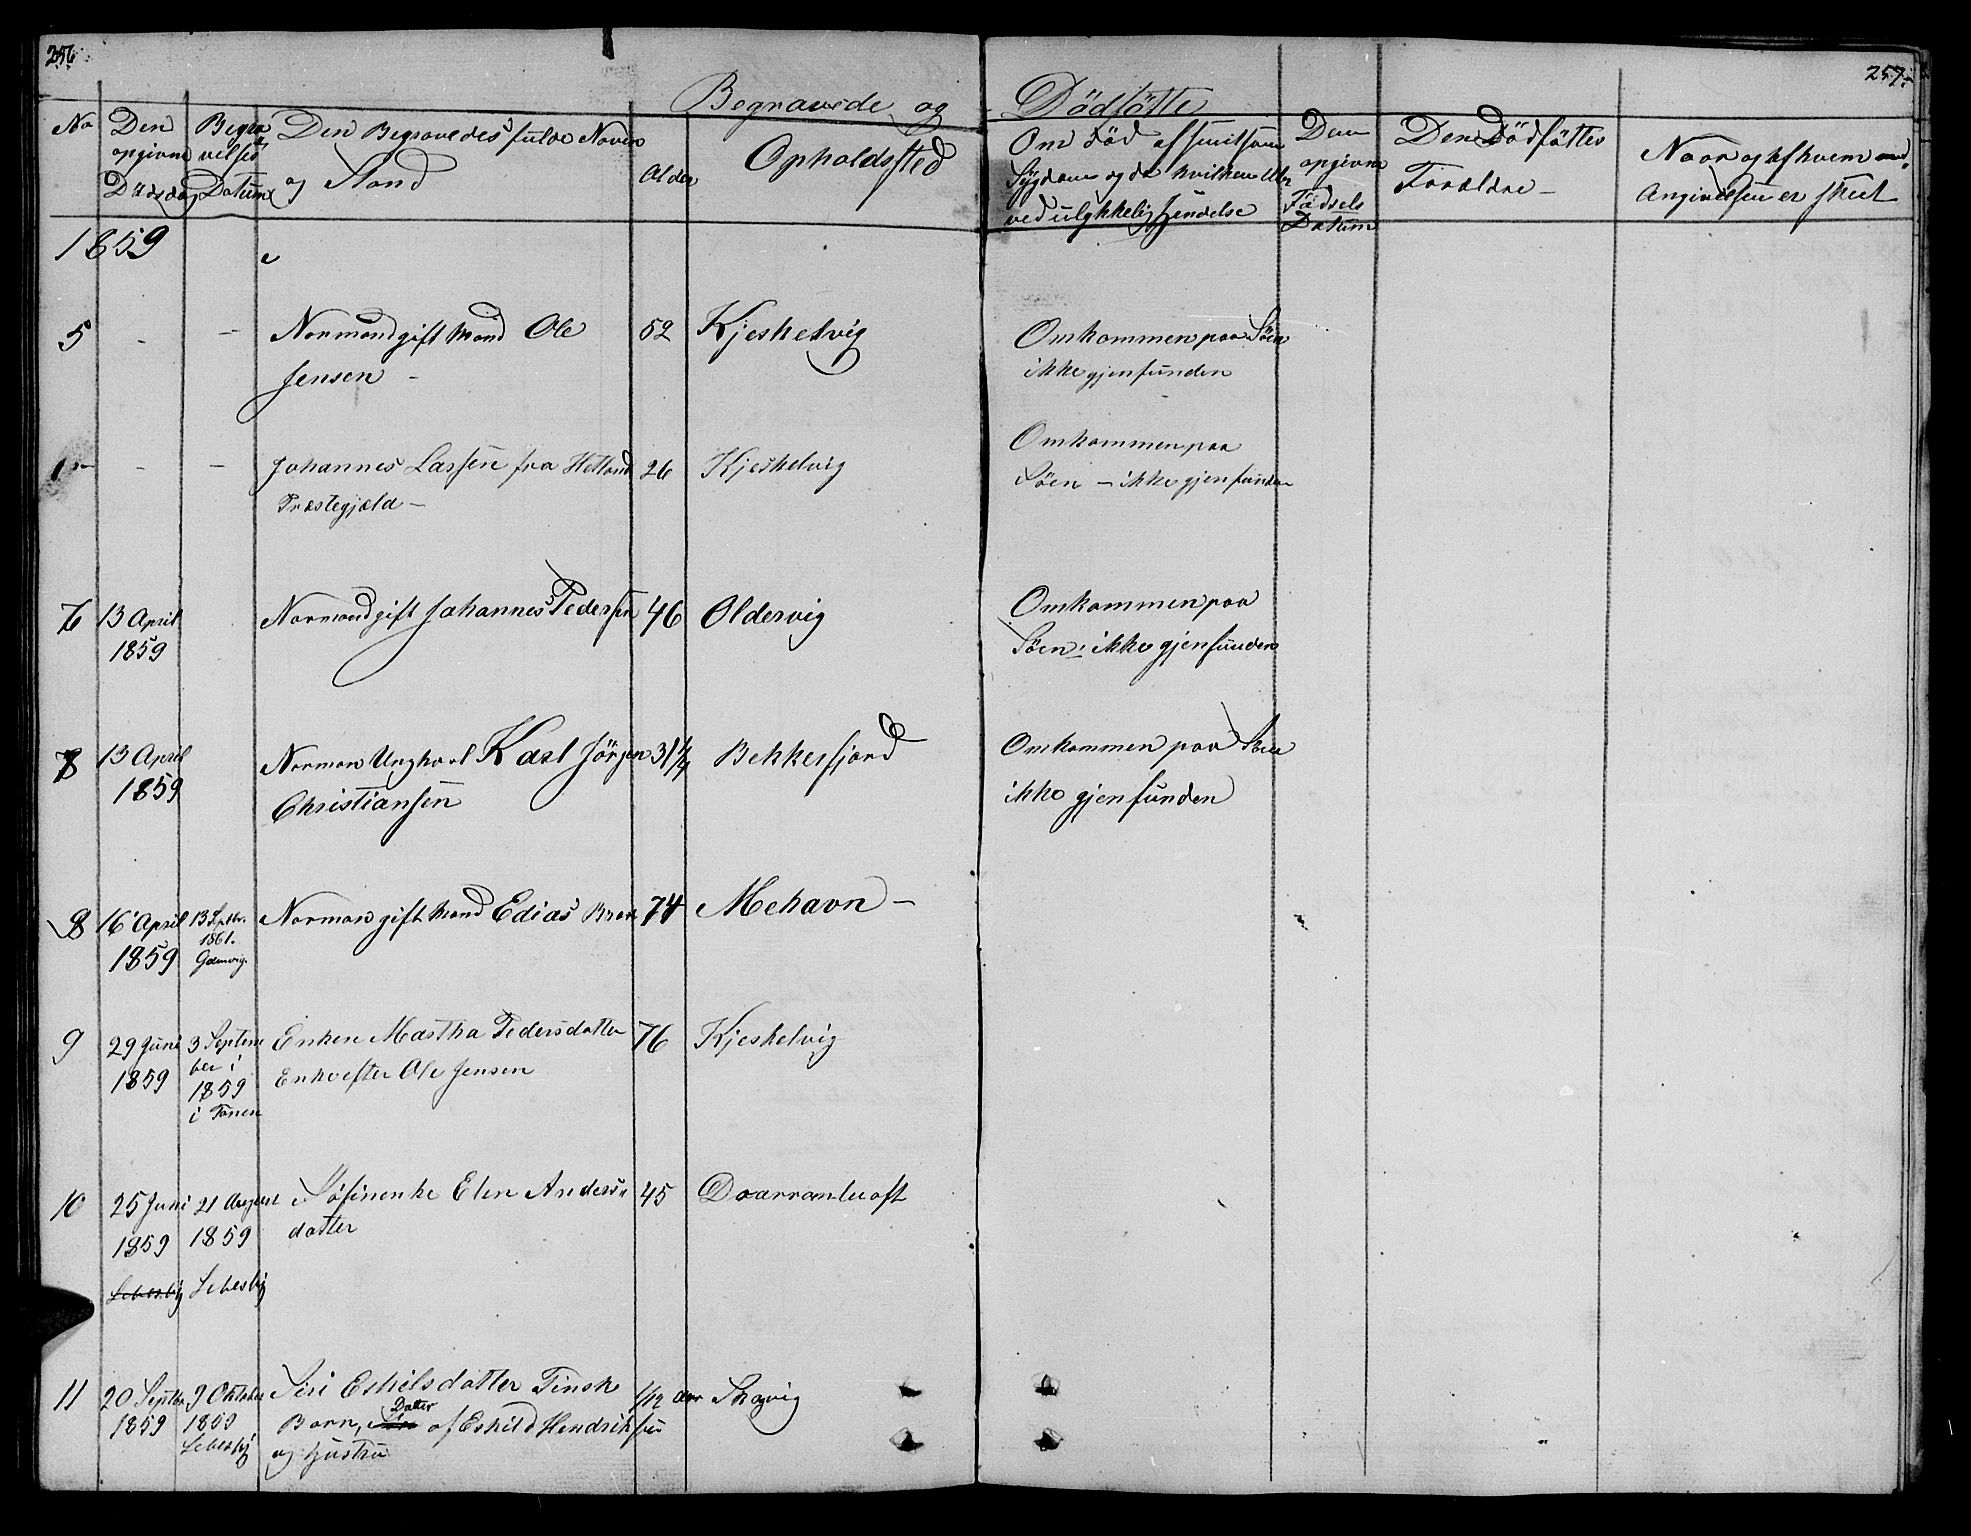 256.
257.
Begravede og Dödfötte
No
Den opgivne Dødsdag
Begravelses Datum
Den Begravedes fulde Navn og Stand
Alder
Opholdssted
Om död af smitsom Sÿgdom og da hvilken eller ved ulykkelig Hendelse
Den opgivne Födsels Datum
Den Dödföttes Forældre
Naar og af hvem Angivelsen er skeet
1859
5 - - Normand gift Mand Ole 52 Kjeskelvig Omkommen paa Söen
Jensen - ikke gjenfunden
- - Johannes Larsen fra Hetland 26 Kjeskelvig Omkommen paa
Præstegjæld - Söen - ikke gjenfunden
13 April Normand gift Johannes Pedersen 46 Oldervig Omkommen paa
1859 Söen ikke gjenfunden
13 April Norman Ungkarl Karl Jörgen 31 1/4 Bekkerfjord Omkommen paa Söen
1859 Christiansen ikke gjenfunden
8 16 April 13 Septbr. Norman gift Mand Edias 74 Mehavn -
1859 1861. Gamvig.
9 29 Juni 3 Septem Enken Martha Pedersdatter 76 Kjeskelvig
1859 ber i Enke efter Ole Jensen
1859
i Tanen
10 25 Juni 21 August Söfinenke Elen Anders- 45 Daarramluoft
1859 1859 datter
Lebesby Lebesby
11 20 Septbr 9 Oktober Siri Eskilsdatter Finsk 1/12 aar Skavig
1859 1859 Barn, Datter af Eskild Hendriksen
Lebesby og Hustru